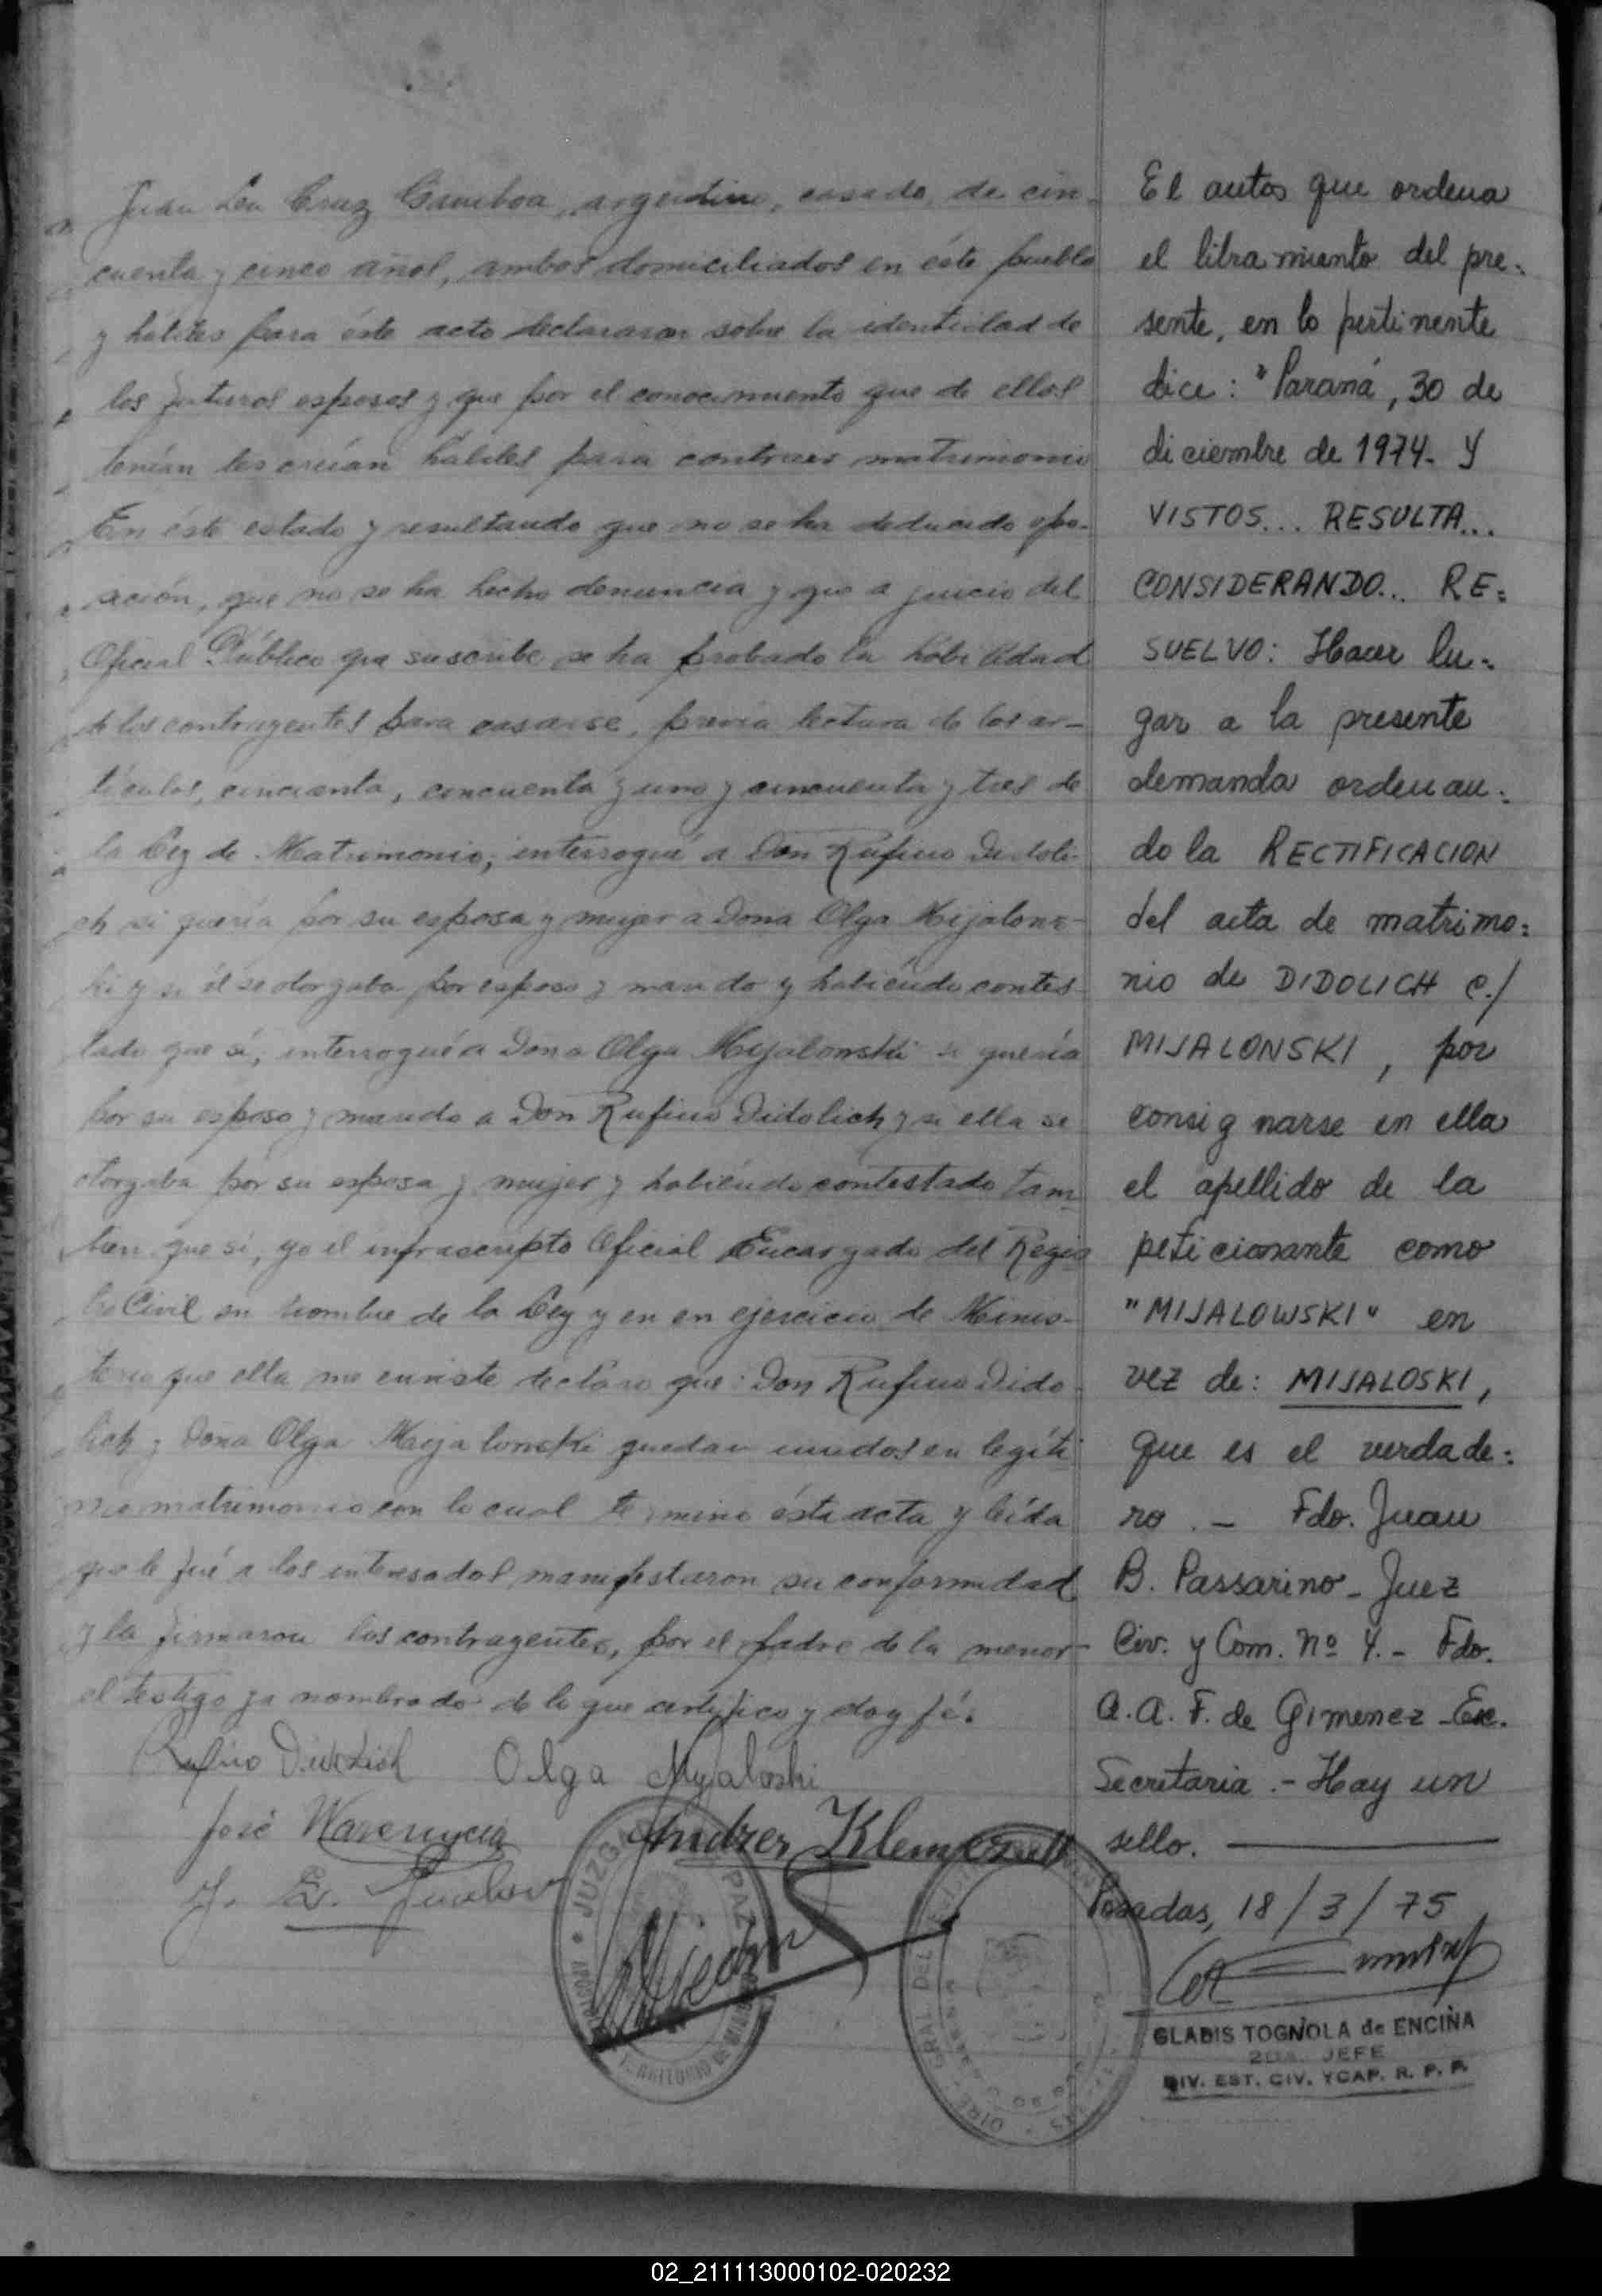 Juan Cruz Gamboa, argentino, casado, de cin-
cuenta y cinco años, ambos domiciliados en éste pueblo
y hábiles para éste acto declararon sobre la identidad de
los futuros esposos y que por el conocimiento que de ellos
tenían los creían hábiles para contraer matrimonio
En éste estado y resultando que no se ha deducido opo-
sición, que no se ha hecho denuncia y que a juicio del
Oficial Público que suscribe se ha probado la habilidad
de los contrayentes para casarse, previa lectura de los ar-
tículos, cincuenta, cincuenta y uno y cincuenta y tres de
la Ley de Matrimonio, interrogué a Don Rufino Didoli-
ch si quería por su esposa y mujer a Doña Olga Mijalons-
ki y si él se otorgaba por esposo y marido y habiendo contes-
tado que sí, interrogué a Doña Olga Mijalonski si quería
por su esposo y marido a Don Rufino Didolich y si ella se
otorgaba por su esposa y mujer y habiendo contestado tam-
bien que sí, yo el infrascripto Oficial Encargado del Regis
tro Civil en nombre de la Ley y en en ejercicio de Minis-
terio que ella me enviste declaro que: Don Rufino Dido-
lich y Doña Olga Mijalonski quedan unidos en legíti
mo matrimonio con lo cual termino ésta acta y leída
que le fué a los interesados manifestaron su conformidad
y la firmaron los contrayentes, por el padre de la menor
el testigo ya nombrado de lo que certifico y doy fé.
Rufino Didolich Olga Myjaloski
José Warenycia
Andres Klemczuk
JUZGADO PAZ
TERRITORIO DE
El autos que ordena
el libramiento del pre=
sente, en lo pertinente
dice: "Paraná, 30 de
diciembre de 1974- Y
VISTOS... RESULTA...
CONSIDERANDO... RE=
SUELVO: Hacer lu=
gar a la presente
demanda ordenan=
do la RECTIFICACION
del acta de matrimo=
nio de DIDOLICH c./
MIJALONSKI, por
consignarse en ella
el apellido de la
peticionante como
"MIJALOWSKI" en
vez de: MIJALOSKI,
que es el verdade=
ro.- Fdo. Juan
B. Passarino - Juez
Civ. y Com. Nº 4.- Fdo.
A. A. F. de Gimenez - Esc.
Secretaria.- Hay un
sello.
Posadas, 18/3/75
GLADIS TOGNOLA de ENCINA
2DA. JEFE
DIV. EST. CIV. YCAP. R. P. P.
DIREC. GRAL DEL
02_211113000102-020232